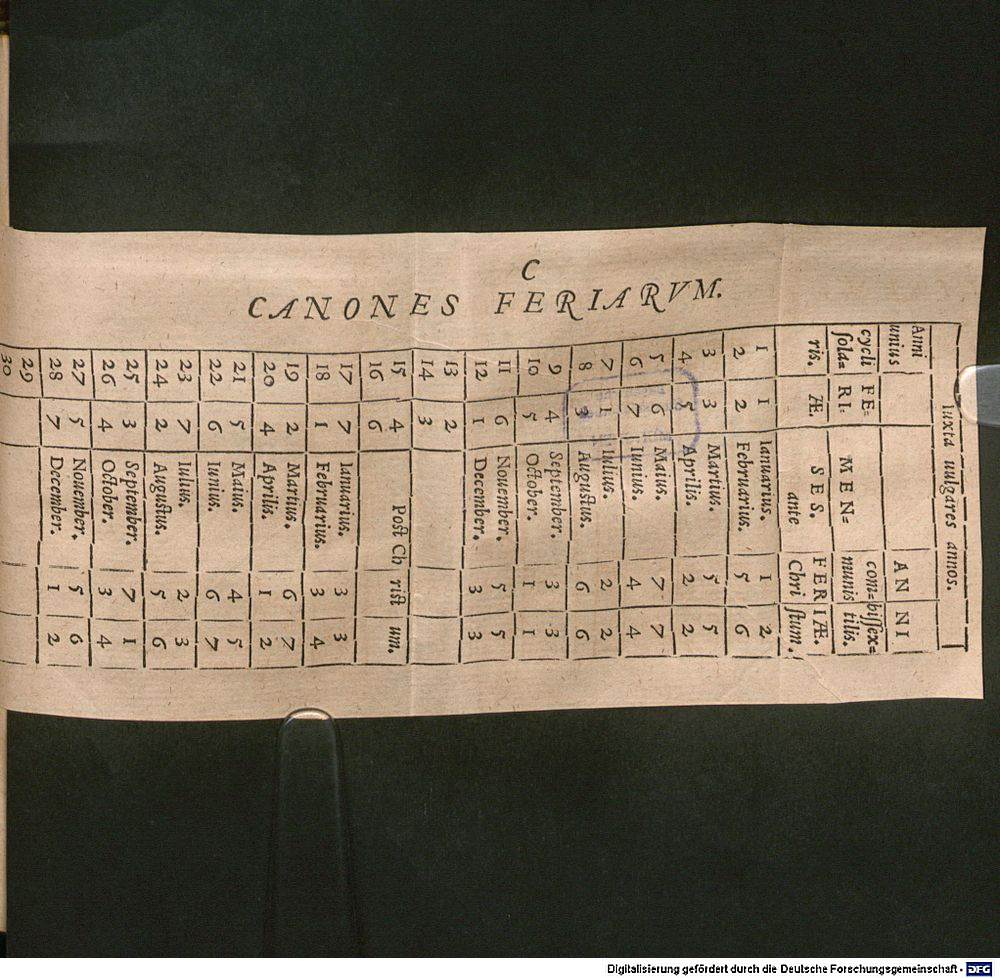 C
CANONES FERIARVM.
Iuxta uulgares annos.
Anni
unius ANNI
cycli FE= MEN= com= bissex=
sola= RI= SES. munis tilis.
ris. Æ. ante FERIÆ.
Chri stum.
1 1 Ianuarius. 1 2
2 2 Februarius. 5 6
3 3 Martius. 5 5
4 5 Aprilis. 2 2
5 6 Maius. 7 7
6 7 Iunius. 4 4
7 1 Iulius. 2 2
8 3 Augustus. 6 6
9 4 September. 3 3
10 5 October. 1 1
11 6 Nouember. 5 5
12 1 December. 3 3
13 2
14 3
15 4 Post Ch rist um.
16 6
17 7 Ianuarius. 3 3
18 1 Februarius. 3 4
19 2 Martius. 6 7
20 4 Aprilis. 1 2
21 5 Maius. 4 5
22 6 Iunius. 6 7
23 7 Iulius. 2 3
24 2 Augustus. 5 6
25 3 September. 7 1
26 4 October. 3 4
27 5 Nouember. 5 6
28 7 December. 1 2
29
30
Digitalisierung gefördert durch die Deutsche Forschungsgemeinschaft - DFG